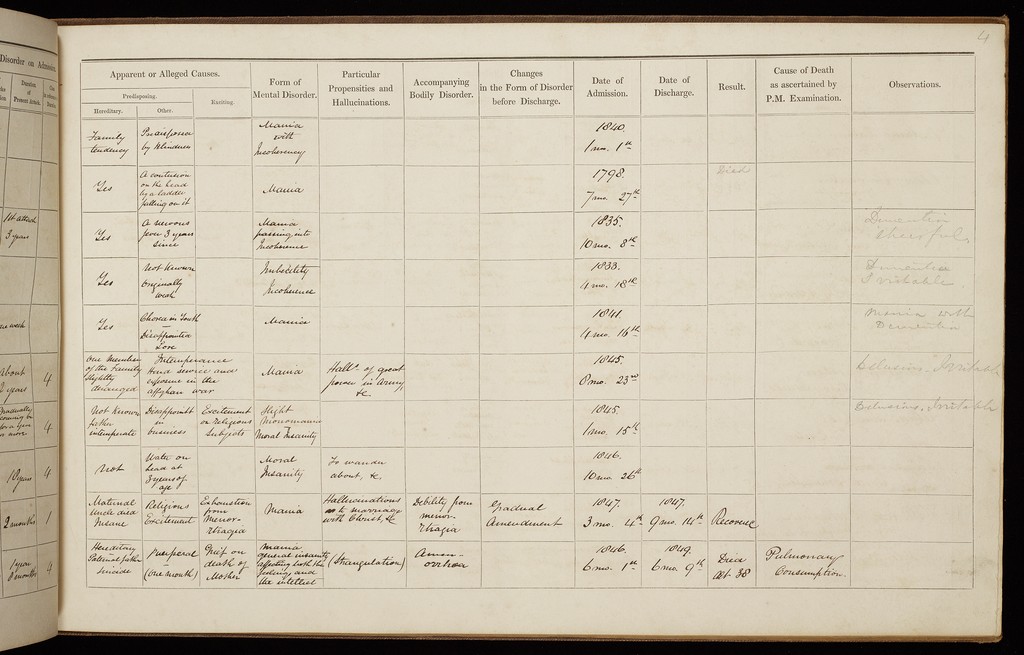 4
Disorder on Admission.
Duration of Present Attack.
Apparent or Alleged Causes.
Predisposing.
Exciting.
Hereditary.
Other.
Form of
Mental Disorder.
Particular
Propensities and
Hallucinations.
Accompanying
Bodily Disorder.
Changes
in the Form of Disorder
before Discharge.
Date of
Admission.
Date of
Discharge.
Result.
Cause of Death
as ascertained by
P.M. Examination.
Observations.
Family
tendency
by Blindness
Mania
with
Incoherency
1840.
1 mo. 1st
Yes
A contusion
on the head
by a ladder
falling on it
Mania
1798.
7 mo. 27th
Died
1st attack
3 years
Yes
A nervous
fever 3 years
since
Mania
passing into
Incoherence
1835.
10 mo. 8th
Dementia
Yes
Not Known
Originally
weak
Imbecility
Incoherence
1833.
4 mo. 18th
Dementia
Irritable
one week
Yes
Chorea in Youth
Disappointed
Love
Mania
1841.
4 mo. 16th
Mania with
Dementia
About
2 years
4
One Member
of the Family
slightly
deranged
Intemperance
Hard service and
exposure in the
Affghan war
Mania
Halls. of great
power in Army,
&c.
1845.
8 mo. 23rd
Delusions. Irritable
Gradually
coming on
for a year
or more
4
Not Known
father
intemperate
Disappoint
in
business
Excitement
on religious
subjects
Slight
Monomania
Moral Insanity
1845.
1 mo. 15th
Delusions. Irritable
18 years
4
Not
Water on
head at
3 years of
age
Moral
Insanity
To wander
about, &c.
1846.
10 mo. 26th
2 months
1
Maternal
Uncle died
Insane
Religious
Excitement
Exhaustion
from
Menor-
rhagia
Mania
Hallucinations
as to marriage
with Christ, &c
Debility from
menor-
rhagia
Gradual
Amendment
1847.
3 mo. 4th
1847.
9 mo. 14th
Recovered
1 year
8 months
4
Hereditary
Paternal father
suicide
Puerperal
(One month)
Grief on
death of
Mother
Mania
general insanity
affecting both the
feelings and
the intellect
(Strangulation)
Amen-
orrhoea
1846.
6 mo. 1st
1849.
6 mo. 9th
Died
Aet 38
Pulmonary
Consumption.